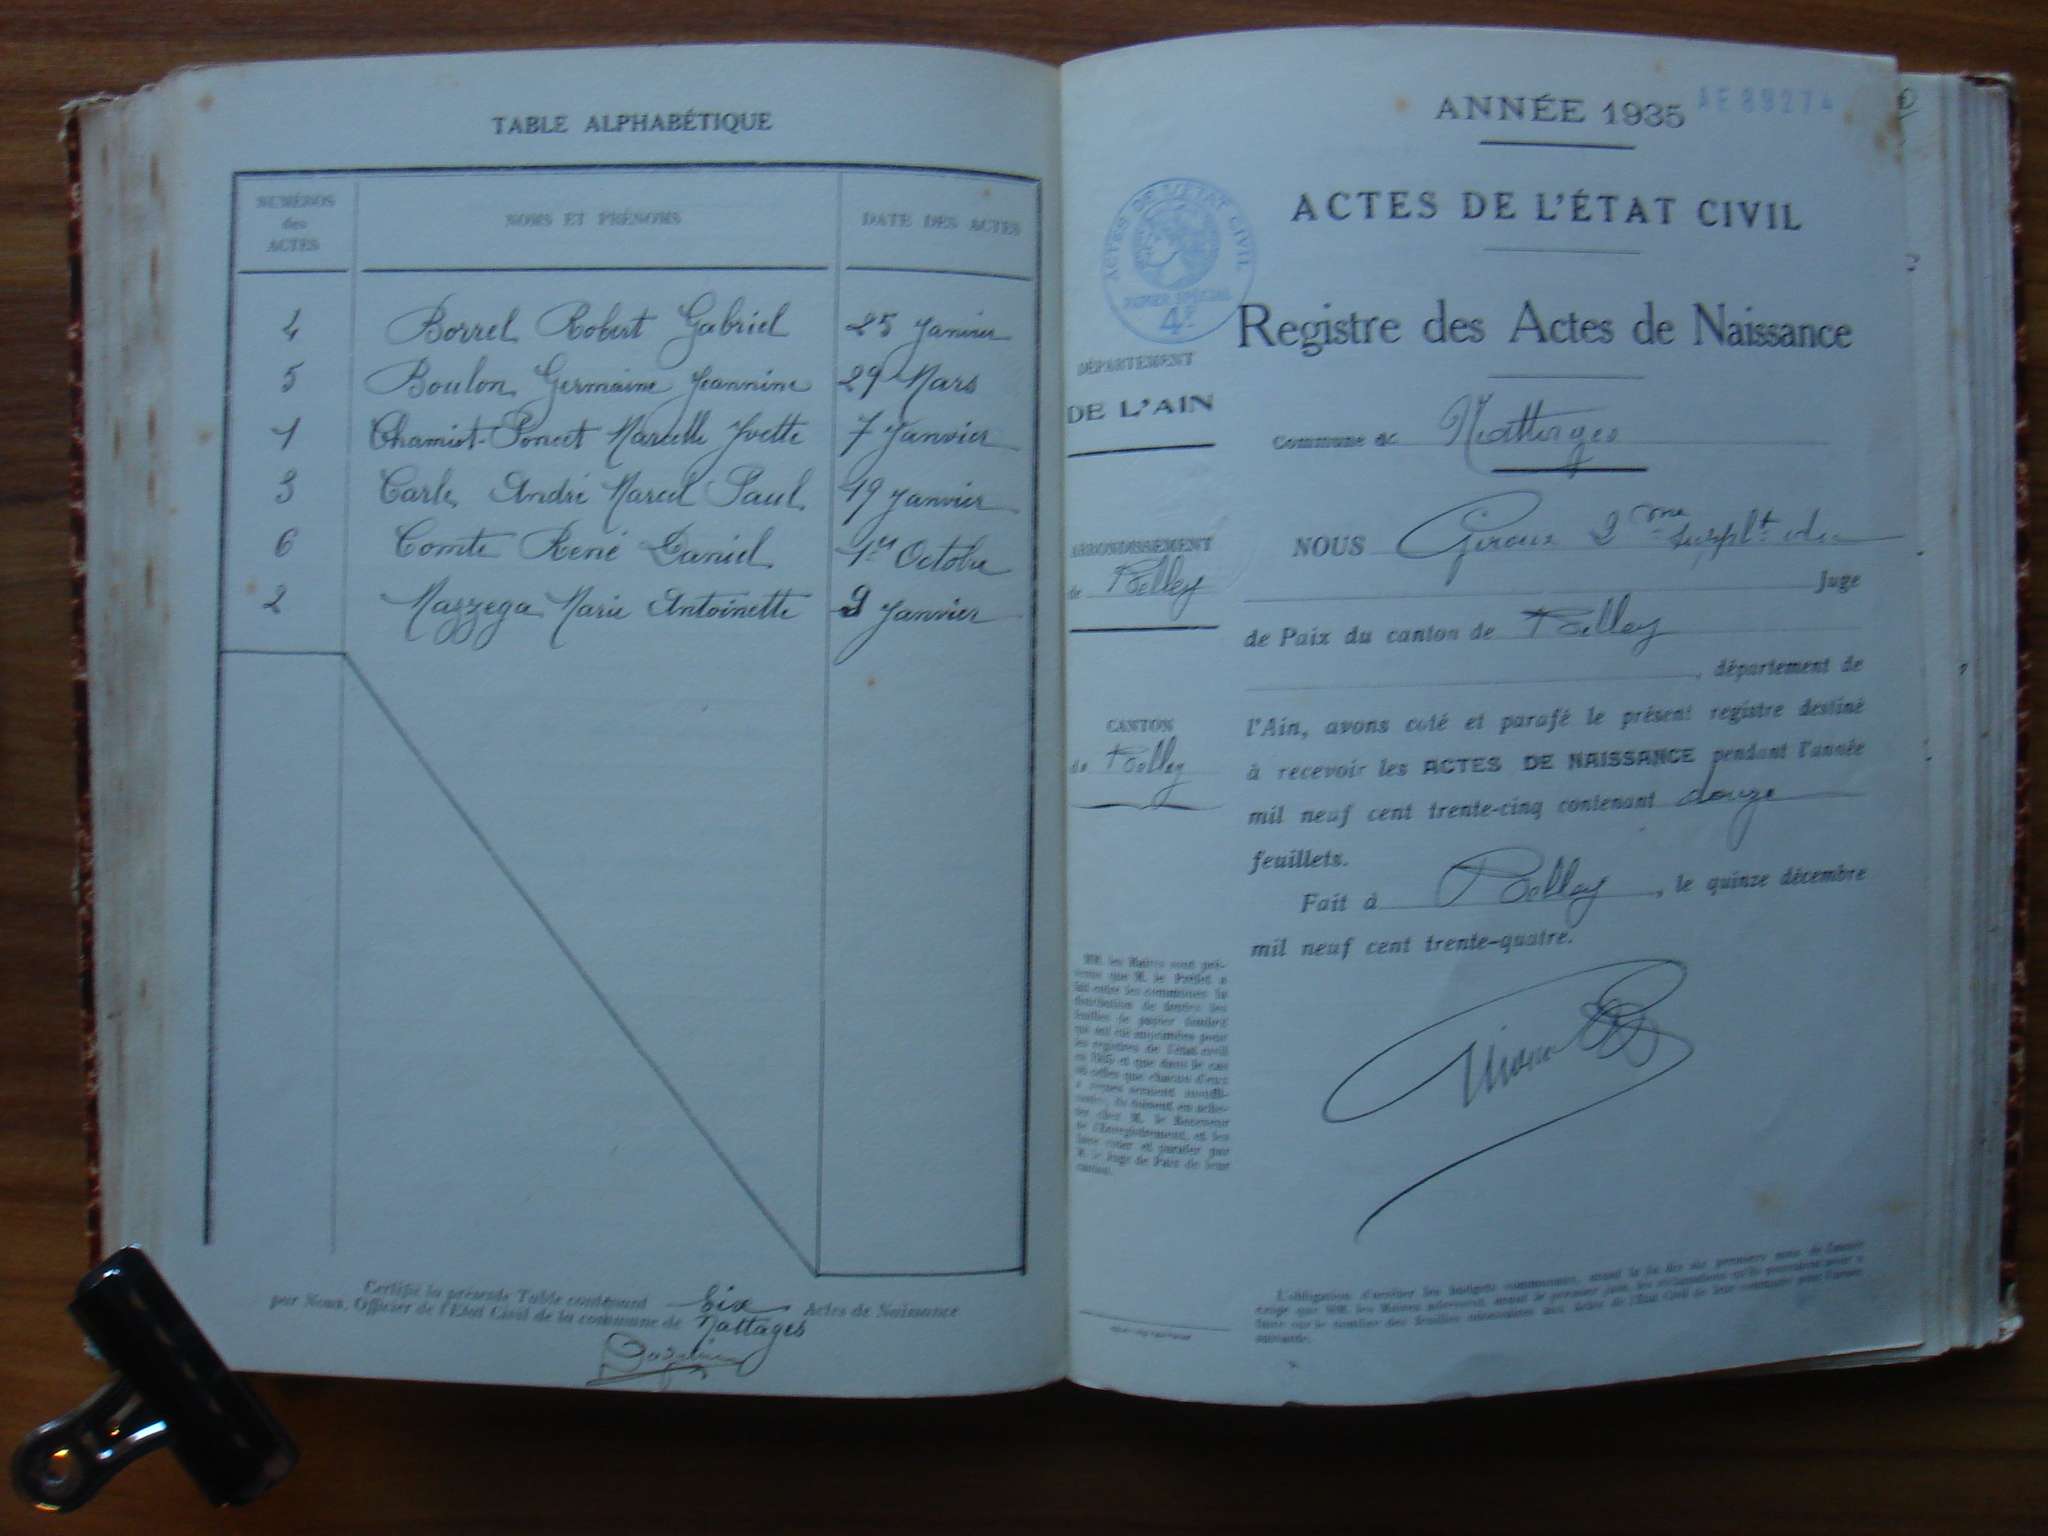 TABLE ALPHABÉTIQUE
NUMÉROS
des
ACTES
NOMS ET PRÉNOMS
DATE DES ACTES
4 Borrel Robert Gabriel 25 Janvier
5 Boulon Germaine Jeannine 29 Mars
1 Chamiot-Poncet Marcelle Yvette 7 Janvier
3 Carle André Marcel Paul 19 Janvier
6 Comte René Daniel 1er Octobre
2 Mazzega Marie Antoinette 9 Janvier
Certifié la présente Table contenant Six Actes de Naissance
par Nous, Officier de l'État Civil de la commune de Nattages
ANNÉE 1935
AE 89274
ACTES DE L'ÉTAT CIVIL
PAPIER SPÉCIAL
4F
ACTES DE L'ÉTAT CIVIL
Registre des Actes de Naissance
DÉPARTEMENT
DE L'AIN
ARRONDISSEMENT
de Belley
CANTON
de Belley
Commune de Nattages
NOUS 2me Suppl.t du
Juge
de Paix du canton de Belley
, département de
l'Ain, avons coté et parafé le présent registre destiné
à recevoir les ACTES DE NAISSANCE pendant l'année
mil neuf cent trente-cinq contenant douze
feuillets.
Fait à Belley, le quinze décembre
mil neuf cent trente-quatre.
MM. les Maires sont pré-
venus que M. le Préfet a
fait entre les communes la
distribution de toutes les
feuilles de papier timbré
qui ont été imprimées pour
les registres de l'état civil
en 1935 et que dans le cas
où celles que chacun d'eux
a reçues seraient insuffi-
santes, ils doivent en ache-
ter chez M. le Receveur
de l'Enregistrement, et les
faire coter et parafer par
M. le Juge de Paix de leur
canton.